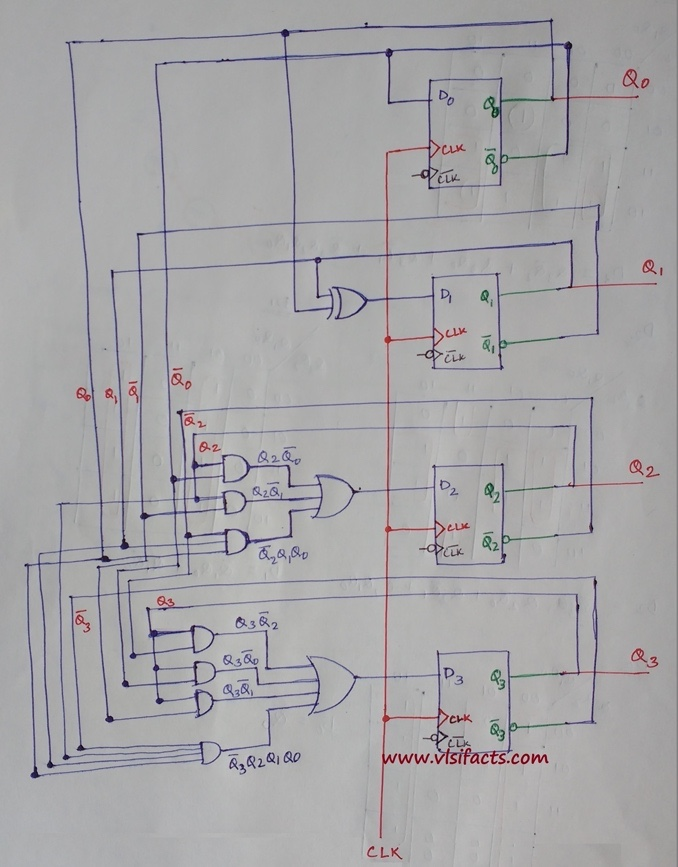 D0 Q0 Q0
CLK Q̅0
C̅L̅K̅
D1 Q1 Q1
CLK
C̅L̅K̅ Q̅1
Q0 Q1 Q̅1 Q̅0
Q̅2
Q2
Q2Q̅0
Q2Q̅1
Q̅2Q1Q0
D2 Q2 Q2
CLK
C̅L̅K̅ Q̅2
Q̅3
Q3
Q3Q̅2
Q3Q̅0
Q3Q̅1
Q̅3Q2Q1Q0
D3 Q3 Q3
CLK
C̅L̅K̅ Q̅3
www.vlsifacts.com
CLK